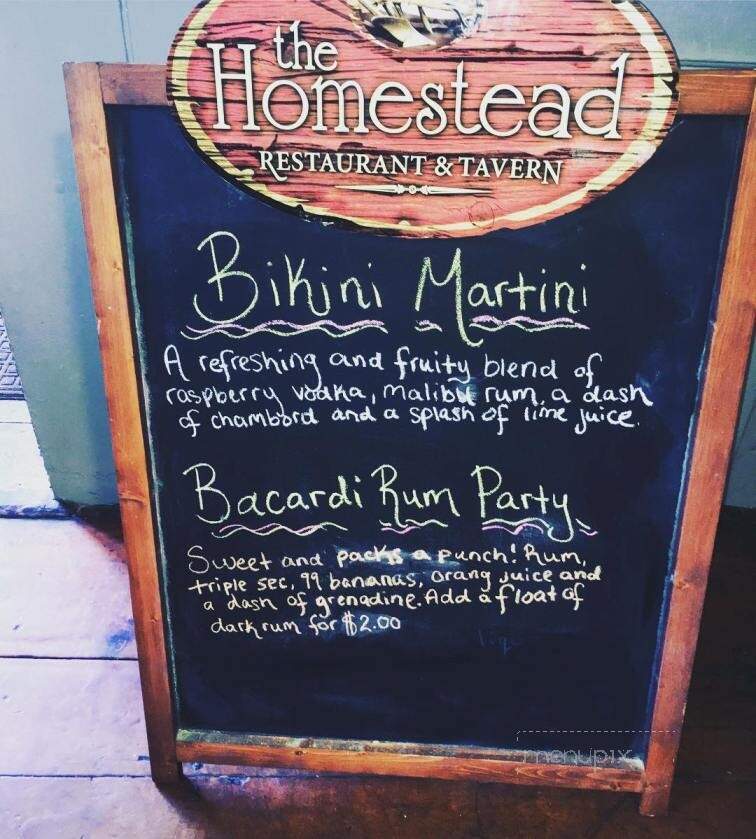 the
Homestead
RESTAURANT & TAVERN
Bikini Martini
A refreshing and fruity blend of
raspberry vodka, malibu rum, a dash
of chambord and a splash of lime juice.
Bacardi Rum Party
Sweet and packs a punch! Rum,
triple sec, 99 bananas, orang juice and
a dash of grenadine. Add a float of
dark rum for $2.00
menupix